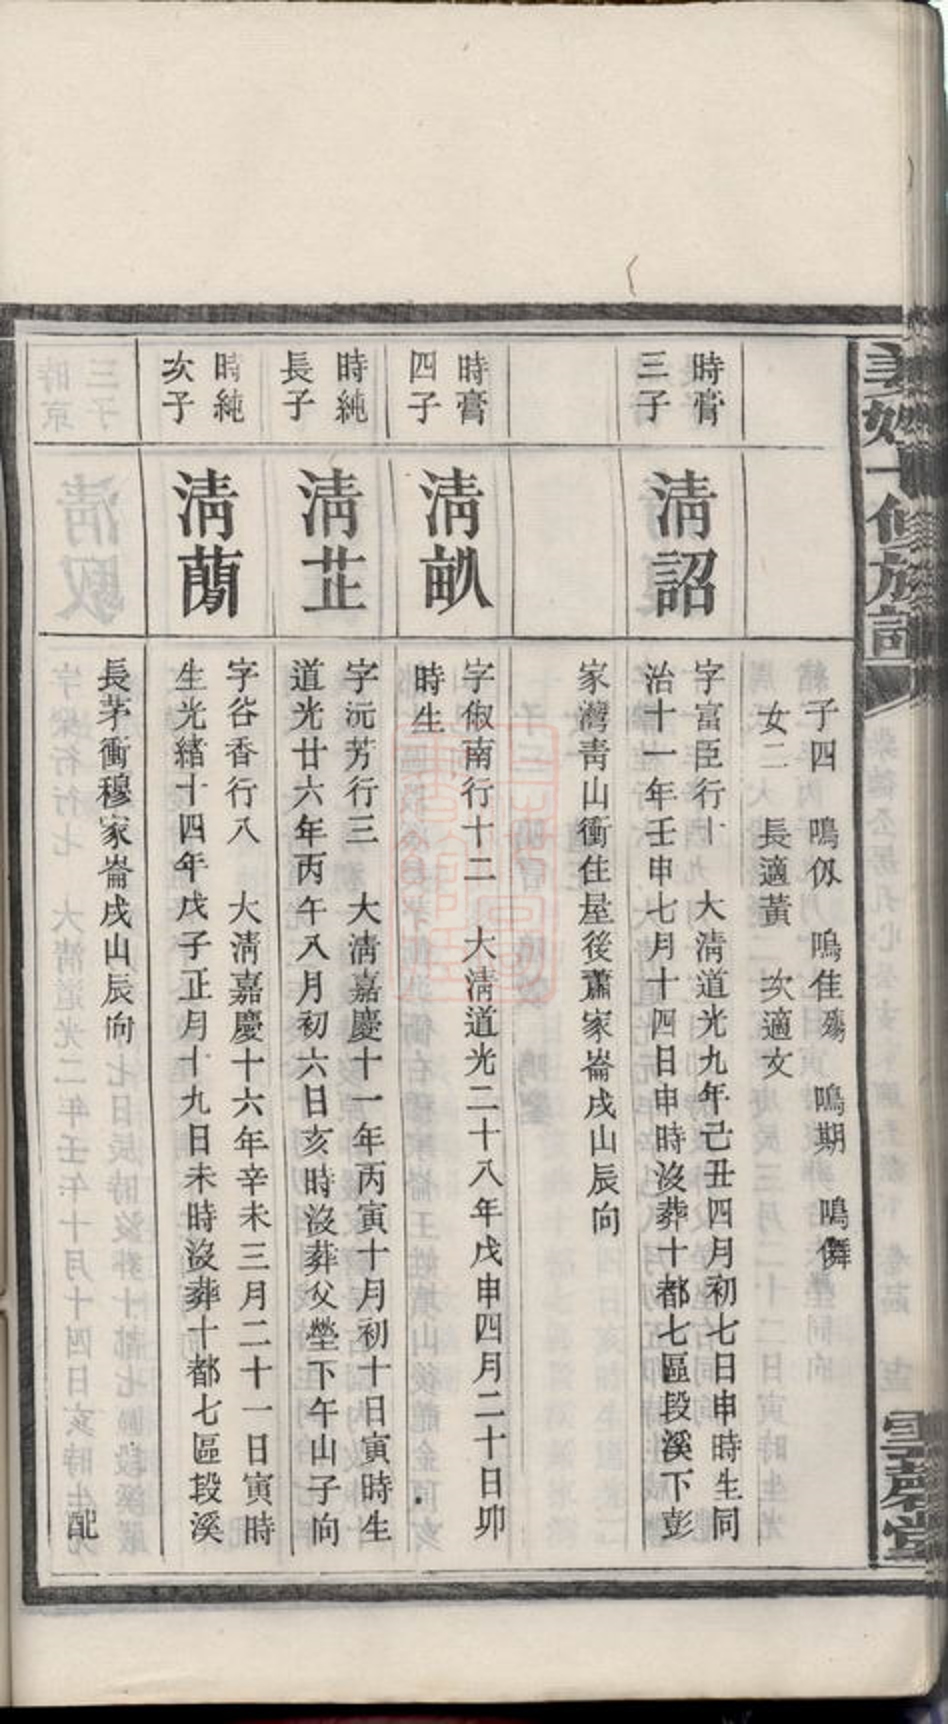 子四　鳴仭　鳴佳殤　鳴期　鳴僯
女二　長適黃　次適文
時膏
三子
清詔
字富臣行十　大清道光九年己丑四月初七日申時生同
治十一年壬申七月十四日申時沒葬十都七區段溪下彭
家灣青山衝住屋後蕭家崙戌山辰向
時膏
四子
清畝
字俶南行十二　大清道光二十八年戊申四月二十日卯
時生
時純
長子
清芷
字沅芳行三　大清嘉慶十一年丙寅十月初十日寅時生
道光廿六年丙午八月初六日亥時沒葬父塋下午山子向
時純
次子
清蕳
字谷香行八　大清嘉慶十六年辛未三月二十一日寅時
生光緒十四年戊子正月十九日未時沒葬十都七區段溪
長茅衝穆家崙戌山辰向　配